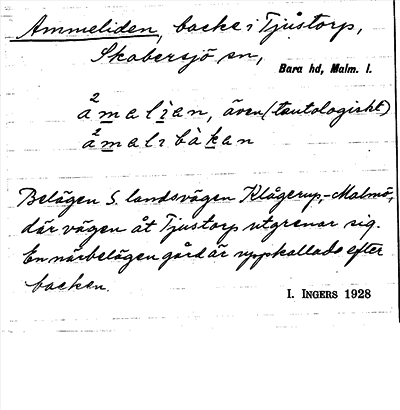 Ammeliden, backe i Tjustorp,
Skabersjö sn,
Bara hd, Malm. l.
a²malìan, även (tautologiskt)
a²malibàkan
Belägen S. landsvägen Klågerup–Malmö,
där vägen åt Tjustorp utgrenar sig.
En närbelägen gård är uppkallade efter
backen.
I. INGERS 1928